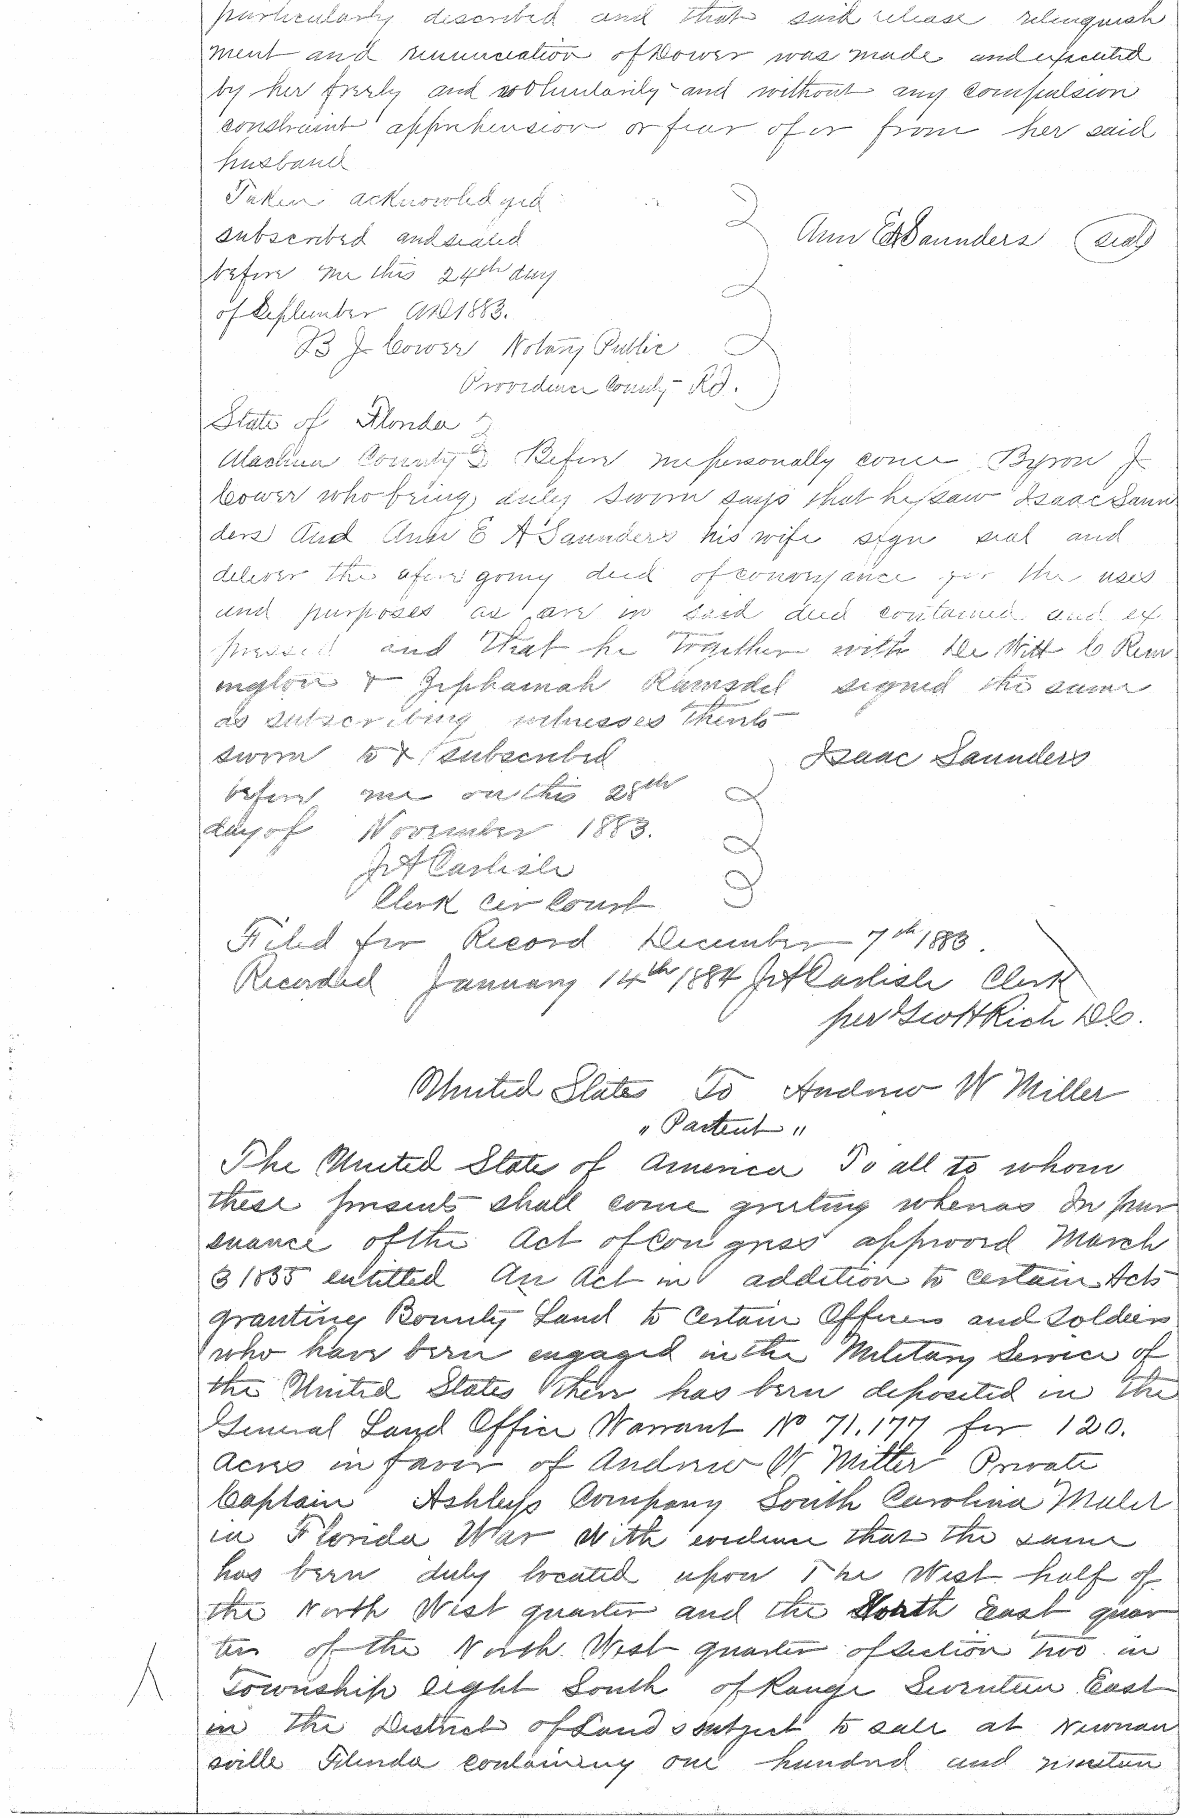 particularly described and that said release relinquish
ment and renunciation of Dower was made and executed
by her freely and voluntarily and without any compulsion
constraint apprehension or fear of or from her said
husband
Taken acknowledged
subscribed and sealed
before me this 24th day
of September AD 1883.
Ann E A Saunders (seal)
B J Cower Notary Public
Providence County R.I.
State of Florida
Alachua County Before me personally come Byron J
Cower who being duly sworn says that he saw Isaac Saun
ders and Ann E A Saunders his wife sign seal and
deliver the afore going deed of conveyance for the uses
and purposes as are in said deed contained and ex
pressed and that he together with De Witt C Rem
ington & Zephaniah Ramsdel signed the same
as subscribing witnesses thereto
sworn to & subscribed
before me on this 28th
day of November 1883.
Isaac Saunders
J A Carlisle
Clerk Cir Court
Filed for Record December 7th 1883.
Recorded January 14th 1884 J A Carlisle Clerk
per Geo H Rich D.C.
United States To Andrew W Miller
" Partent "
The United States of America To all to whom
these presents shall come greeting whereas In pur
suance of the Act of Congress approved March
3 1855 entitled An Act in addition to certain Acts
granting Bounty Land to certain Officers and Soldiers
who have been engaged in the Military Service of
the United States There has been deposited in the
General Land Office Warrant No 71.177 for 120.
Acres in favor of Andrew W Miller Private
Captain Ashleys Company South Carolina
in Florida War With evidence that the same
has been duly located upon The West half of
the North West quarter and the South East quar
ter of the North West quarter of section Two in
Township eight South of Range Seventeen East
in the District of Lands subject to sale at Newnan
sville Florida containing one hundred and nineteen